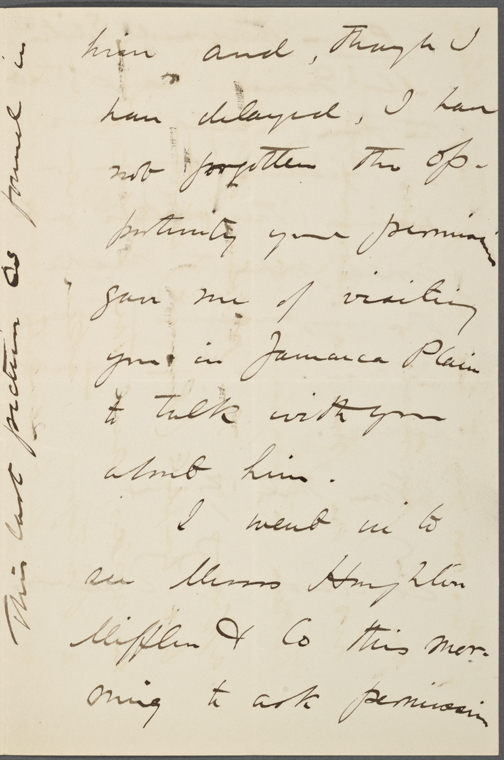 him and, though I
have delayed, I have
not forgotten the op-
portunity your permission
gave me of visiting
you in Jamaica Plain
to talk with you
about him.
I went in to
see Messrs Houghton
Mifflin & Co this mor-
ning to ask permission
This last picture is found in